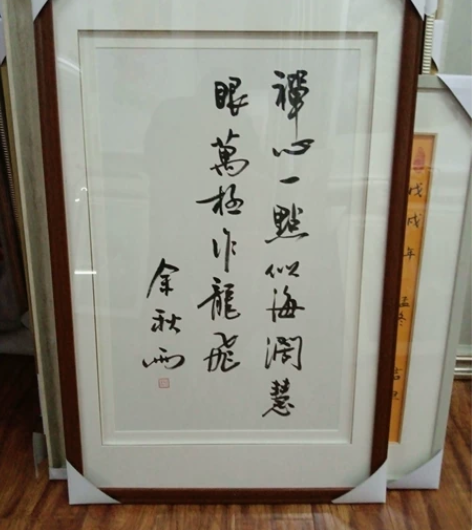 禪心一點似海濶慧
眼萬極作龍飛
余秋雨
戊戌年孟冬